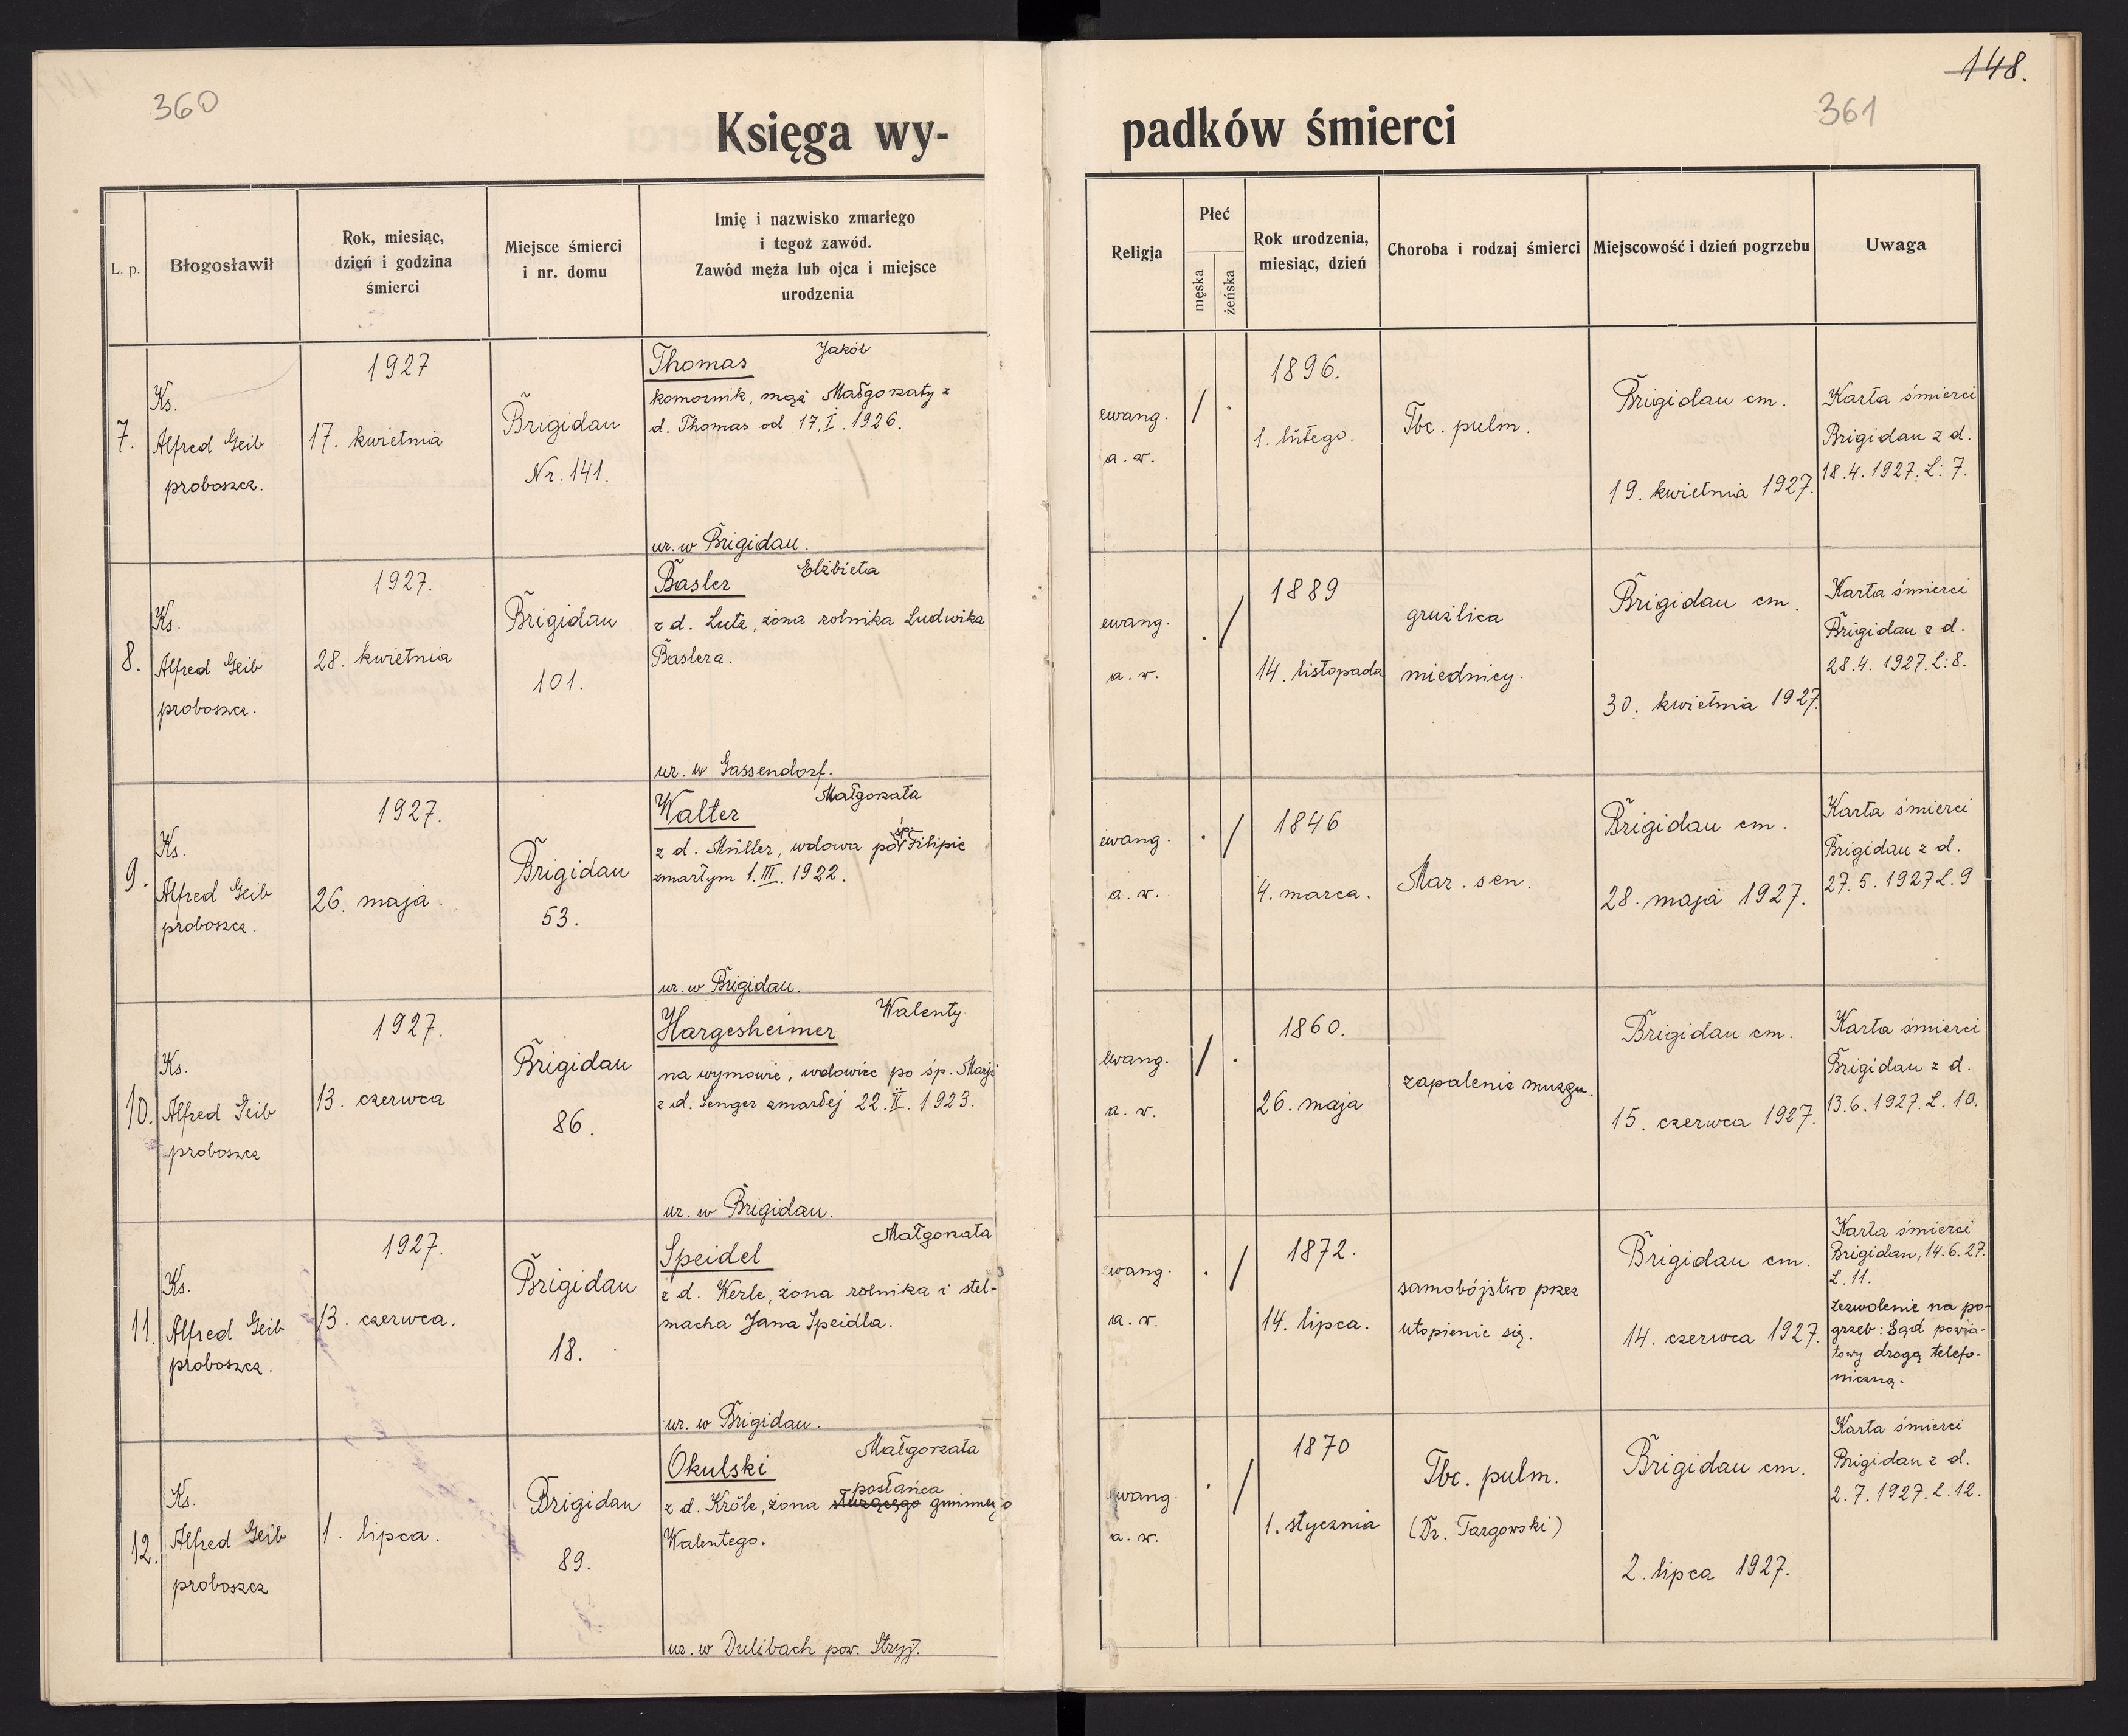 360
148.
361
Księga wy-
padków śmierci
L. p.
Błogosławił
Rok, miesiąc,
dzień i godzina
śmierci
Miejsce śmierci
i nr. domu
Imię i nazwisko zmarłego
i tegoż zawód.
Zawód męża lub ojca i miejsce
urodzenia
Religja
Płeć
męska
żeńska
Rok urodzenia,
miesiąc, dzień
Choroba i rodzaj śmierci
Miejscowość i dzień pogrzebu
Uwaga
7.
Ks.
Alfred Geib
proboszcz.
1927
17. kwietnia
Brigidau
Nr. 141.
Thomas Jakób
komornik, mąż Małgorzaty z
d. Thomas od 17. I. 1926.
ur. w Brigidau.
ewang.
a. w.
/ .
1896.
1. lutego.
Tbc. pulm.
Brigidau cm.
19. kwietnia 1927.
Karta śmierci
Brigidau z d.
18. 4. 1927. L: 7.
8.
Ks.
Alfred Geib
proboszcz.
1927.
28. kwietnia
Brigidau
101.
Basler Elżbieta
z d. Lutz, żona rolnika Ludwika
Baslera.
ur. w Gassendorf.
ewang.
a. w.
. /
1889
14. listopada
gruźlica
miednicy.
Brigidau cm.
30. kwietnia 1927.
Karta śmierci
Brigidau z d.
28. 4. 1927. L: 8.
9.
Ks.
Alfred Geib
proboszcz.
1927.
26. maja.
Brigidau
53.
Walter Małgorzata
z d. Müller, wdowa po śp. Filipie
zmarłym 1. III. 1922.
ur. w Brigidau.
ewang.
a. w.
. /
1846
4. marca.
Mar. sen.
Brigidau cm.
28. maja 1927.
Karta śmierci
Brigidau z d.
27. 5. 1927 L. 9
10.
Ks.
Alfred Geib
proboszcz
1927.
13. czerwca
Brigidau
86.
Hargesheimer Walenty.
na wymowie, wdowiec po śp. Marji
z d. Senger zmarłej 22. II. 1923.
ur. w Brigidau.
ewang.
a. w.
/ .
1860.
26. maja
zapalenie muzgu.
Brigidau cm.
15. czerwca 1927.
Karta śmierci
Brigidau z d.
13. 6. 1927. L. 10.
11.
Ks.
Alfred Geib
proboszcz.
1927.
13. czerwca.
Brigidau
18.
Speidel Małgorzata
z d. Werle, żona rolnika i stel-
macha Jana Speidla.
ur. w Brigidau.
ewang.
a. w.
. /
1872.
14. lipca.
samobójstwo przez
utopienie się.
Brigidau cm.
14. czerwca 1927.
Karta śmierci
Brigidau, 14. 6. 27.
L. 11.
Zezwolenie na po-
grzeb: Sąd powia-
towy drogą telefo-
niczną.
12.
Ks.
Alfred Geib
proboszcz
1. lipca.
Brigidau
89.
Okulski Małgorzata
posłańca
z d. Kröle, żona służącego gminnego
Walentego.
ur. w Dulibach pow. Stryj.
ewang.
a. w.
. /
1870
1. stycznia
Tbc. pulm.
(Dr. Targowski)
Brigidau cm.
2. lipca 1927.
Karta śmierci
Brigidau z d.
2. 7. 1927. L. 12.